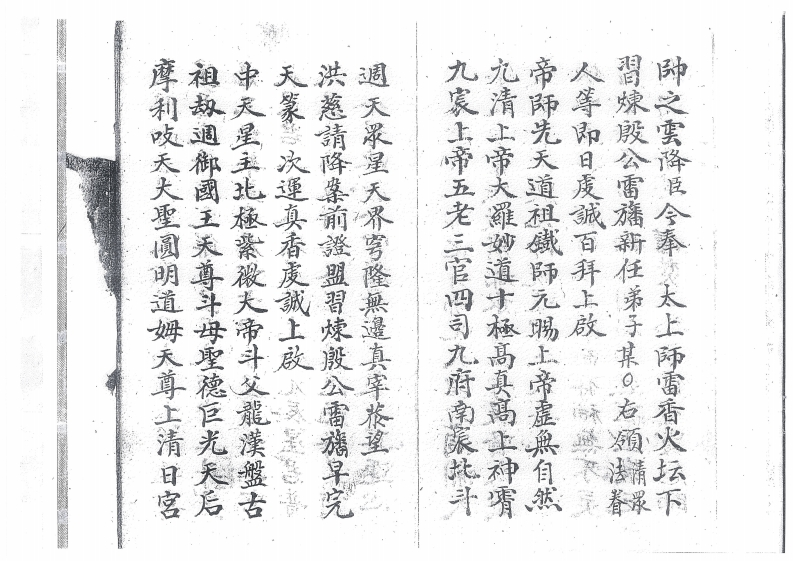 帥之雲降臣今奉　太上師雷香火坛下
習煉殷公雷旛新任弟子某〇右領清眾法眷
人等即日虔誠百拜上啟
帝師先天道祖鐵師元賜上帝虛無自然
九清上帝大羅妙道十極高真高上神霄
九宸上帝五老三官四司九府南宸北斗
週天眾星天界穹隆無邊真宰恭望
洪慈請降案前證盟習煉殷公雷旛早完
天篆　次運真香虔誠上啟
中天星主北極紫微大帝斗父龍漢盤古
祖劫週御國王天尊斗母聖德巨光天后
摩利吱天大聖圓明道姆天尊上清日宮